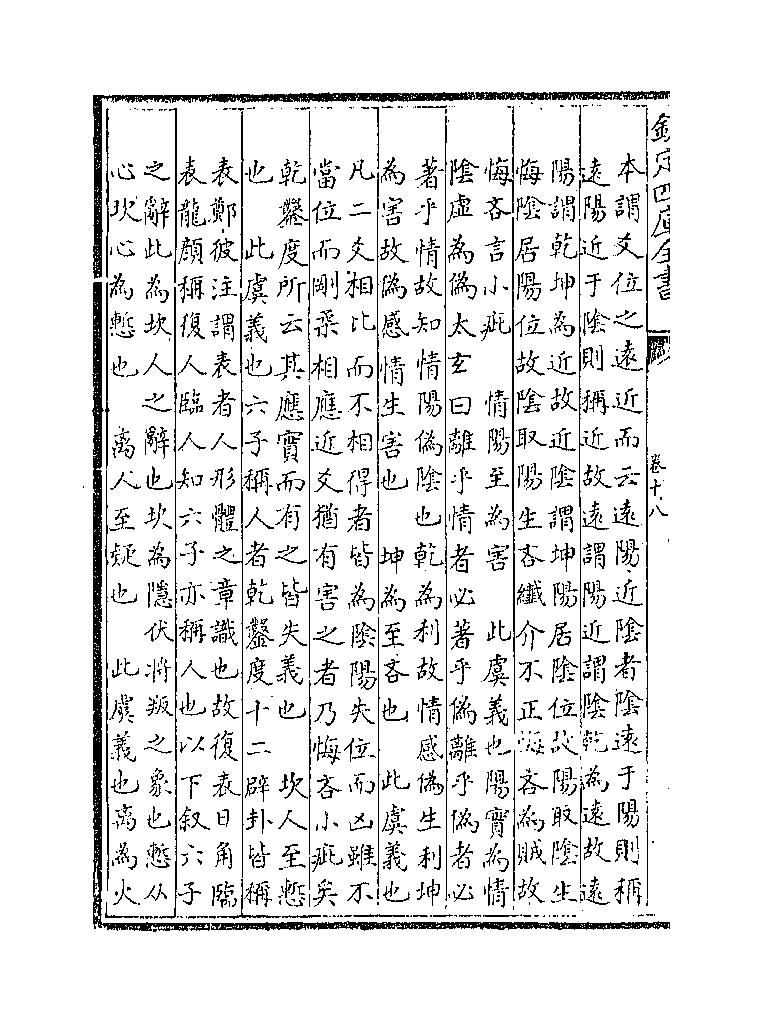 欽定四庫全書
卷十八
本謂爻位之遠近而云遠陽近陰者陰遠于陽則稱
遠陽近于陰則稱近故遠謂陽近謂陰乾為遠故遠
陽謂乾坤為近故近陰謂坤陽居陰位故陽取陰生
悔陰居陽位故陰取陽生吝纖介不正悔吝為賊故
悔吝言小疵　情陽至為害　此虞義也陽實為情
陰虛為偽太玄曰離乎情者必著乎偽離乎偽者必
著乎情故知情陽偽陰也乾為利故情感偽生利坤
為害故偽感情生害也　坤為至吝也　此虞義也
凡二爻相比而不相得者皆為陰陽失位而凶雖不
當位而剛柔相應近爻猶有害之者乃悔吝小疵矣
乾鑿度所云其應實而有之皆失義也　坎人至慙
也　此虞義也六子稱人者乾鑿度十二辟卦皆稱
表鄭彼注謂表者人形體之章識也故復表日角臨
表龍顔稱復人臨人知六子亦稱人也以下叙六子
之辭此為坎人之辭也坎為隱伏將叛之象也慙从
心坎心為慙也　離人至疑也　此虞義也离為火